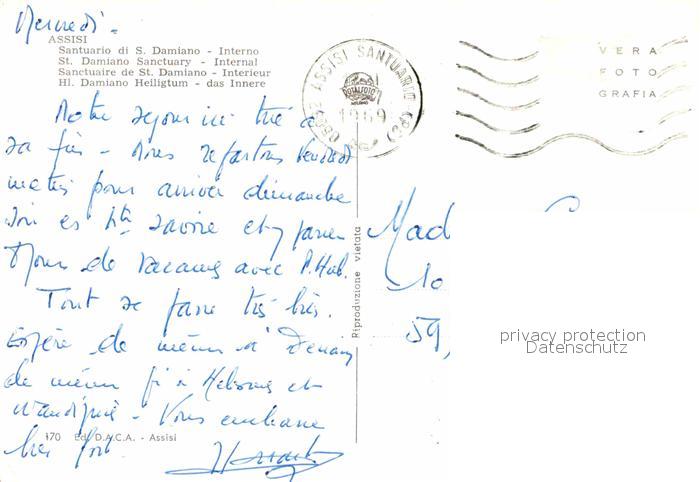 Mercredi -
ASSISI
Santuario di S. Damiano - Interno
St. Damiano Sanctuary - Internal
Sanctuaire de St. Damiano - Interieur
Hl. Damiano Heiligtum - das Innere
ASSISI SANTUARIO (PG)
ROTALFOTO
MILANO
1969
VERA
FOTO
GRAFIA
Notre séjour ici tire à
sa fin - Nous repartons Vendredi
matin pour arriver dimanche
soir en Hte Savoie et y passer
de vacances avec
Tout se passe très bien.
Espère de même à Denain
de même
Vous embrasse
bien fort
Riproduzione vietata
Mad
10
59,
privacy protection
Datenschutz
170 Ed. D.A.C.A. - Assisi